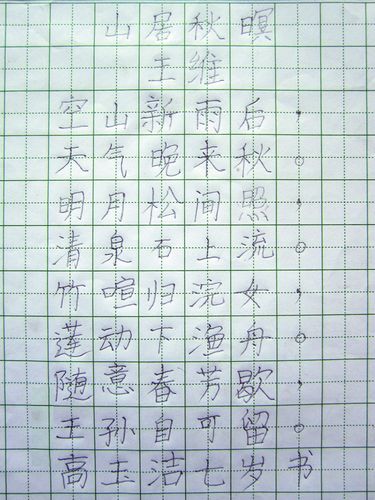 山居秋暝
王维
空山新雨后，
天气晚来秋。
明月松间照，
清泉石上流。
竹喧归浣女，
莲动下渔舟。
随意春芳歇，
王孙自可留。
高玉洁七岁书